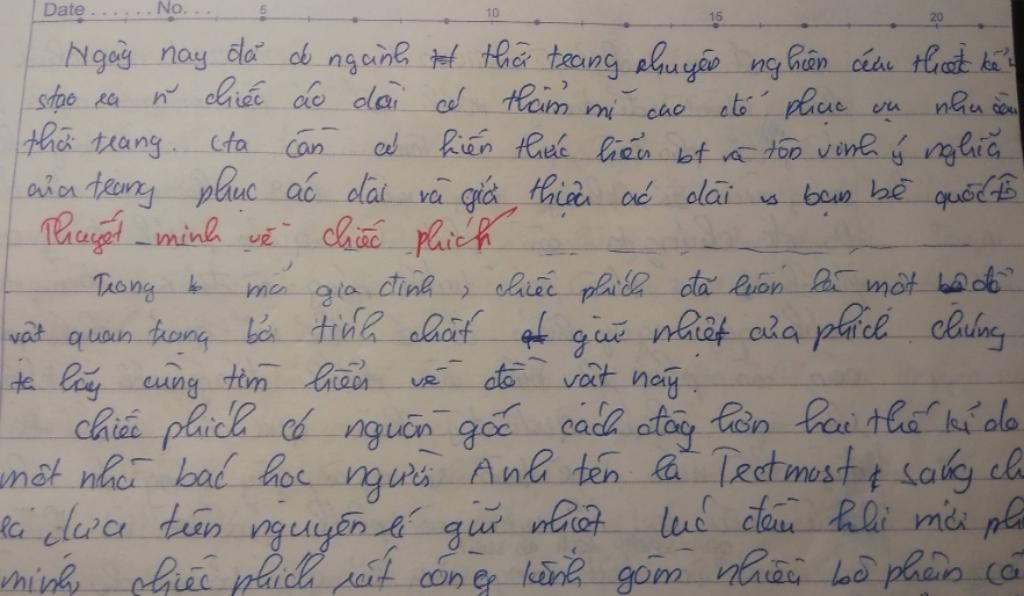 Date ...... No. ... 5 10 15 20
Ngày nay đã có ngành thời trang chuyên nghiên cứu thiết kế
tạo ra n~ chiếc áo dài có thẩm mĩ cao để phục vụ nhu cầu
thời trang. Cta cần có kiến thức hiểu bt và tôn vinh ý nghĩa
của trang phục áo dài và giới thiệu áo dài vs bạn bè quốc tế
Thuyết minh về chiếc phích
Trong mỗi gia đình, chiếc phích đã luôn là một đồ
vật quan trọng bởi tính chất giữ nhiệt của phích chúng
ta hãy cùng tìm hiểu về đồ vật này.
Chiếc phích có nguồn gốc cách đây hơn hai thế kỉ do
một nhà bác học người Anh tên là Tectmost sáng
ra dựa trên nguyên lí giữ nhiệt lúc đầu khi mới
minh chiếc phích rất cồng kềnh gồm nhiều bộ phận